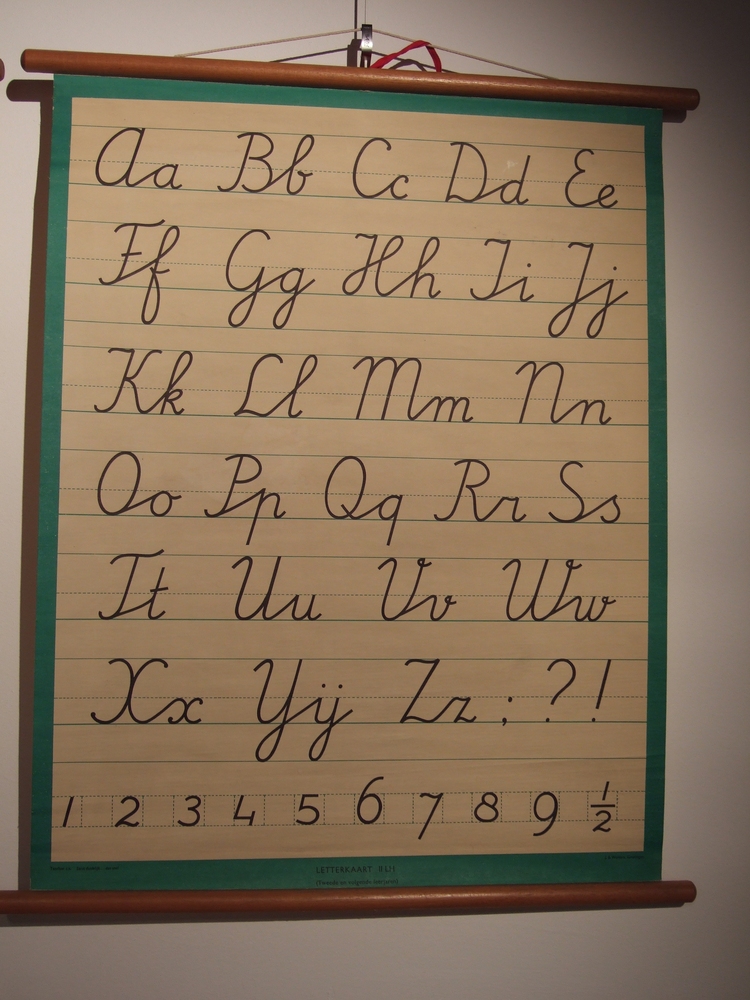 Aa Bb Cc Dd Ee
Ff Gg Hh Ii Jj
Kk Ll Mm Nn
Oo Pp Qq Rr Ss
Tt Uu Vv Ww
Xx Yij Zz ; ? !
1 2 3 4 5 6 7 8 9 1/2
LETTERKAART
(Tweede en volgende leerjaren)